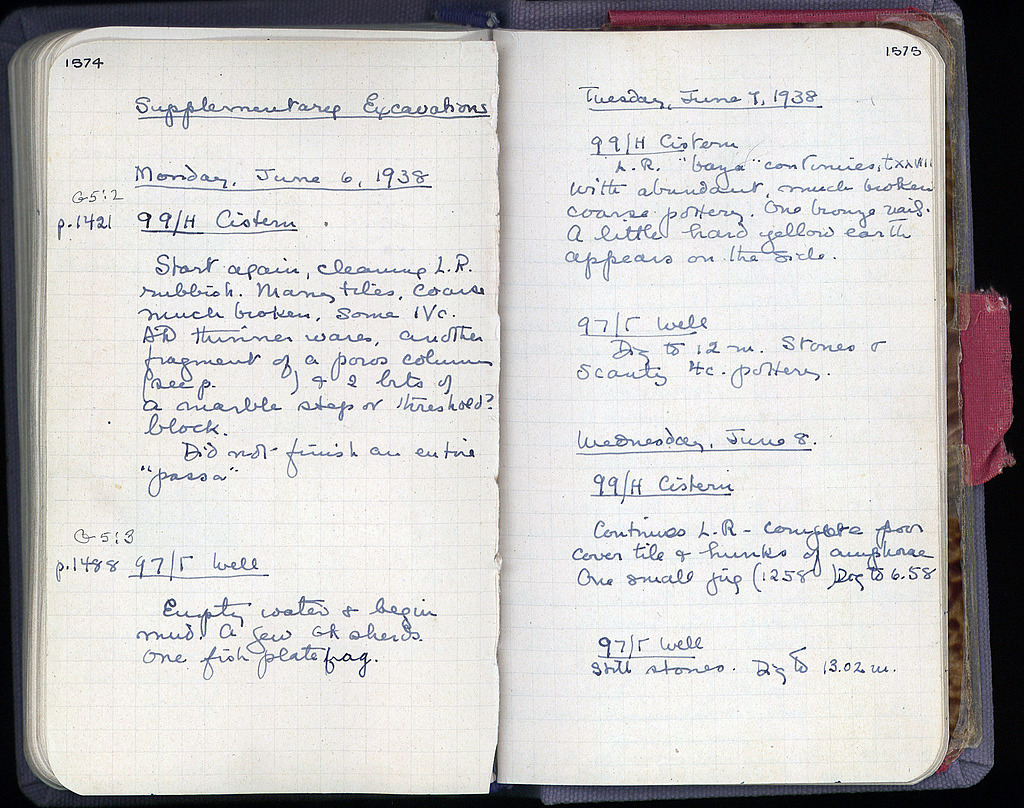 1574
Supplementary Excavations
Monday, June 6, 1938
G 5:2
p.1421 99/H Cistern
Start again, cleaning L.R.
rubbish. Many tiles, coarse
much broken, some IVc.
AD thinner wares, another
fragment of a poros column
(see p. ) & 2 bits of
a marble step or threshold?
block.
Did not finish an entire
"passa"
G 5:3
p.1488 97/Γ Well
Empty water & begin
mud. A few Gk sherds.
One fish plate frag.
1575
Tuesday, June 7, 1938
99/H Cistern
L.R. "baza" continues,
with abundant, much broken
coarse pottery. One bronze nail.
A little hard yellow earth
appears on the side.
97/Γ Well
Dig to 12 m. Stones &
scanty 4c. pottery.
Wednesday, June 8.
99/H Cistern
Continues L.R - complete poor
cover tile & hunks of amphorae
One small jug (1258 ) Dig to 6.58
97/Γ Well
Still stones. Dig to 13.02 m.